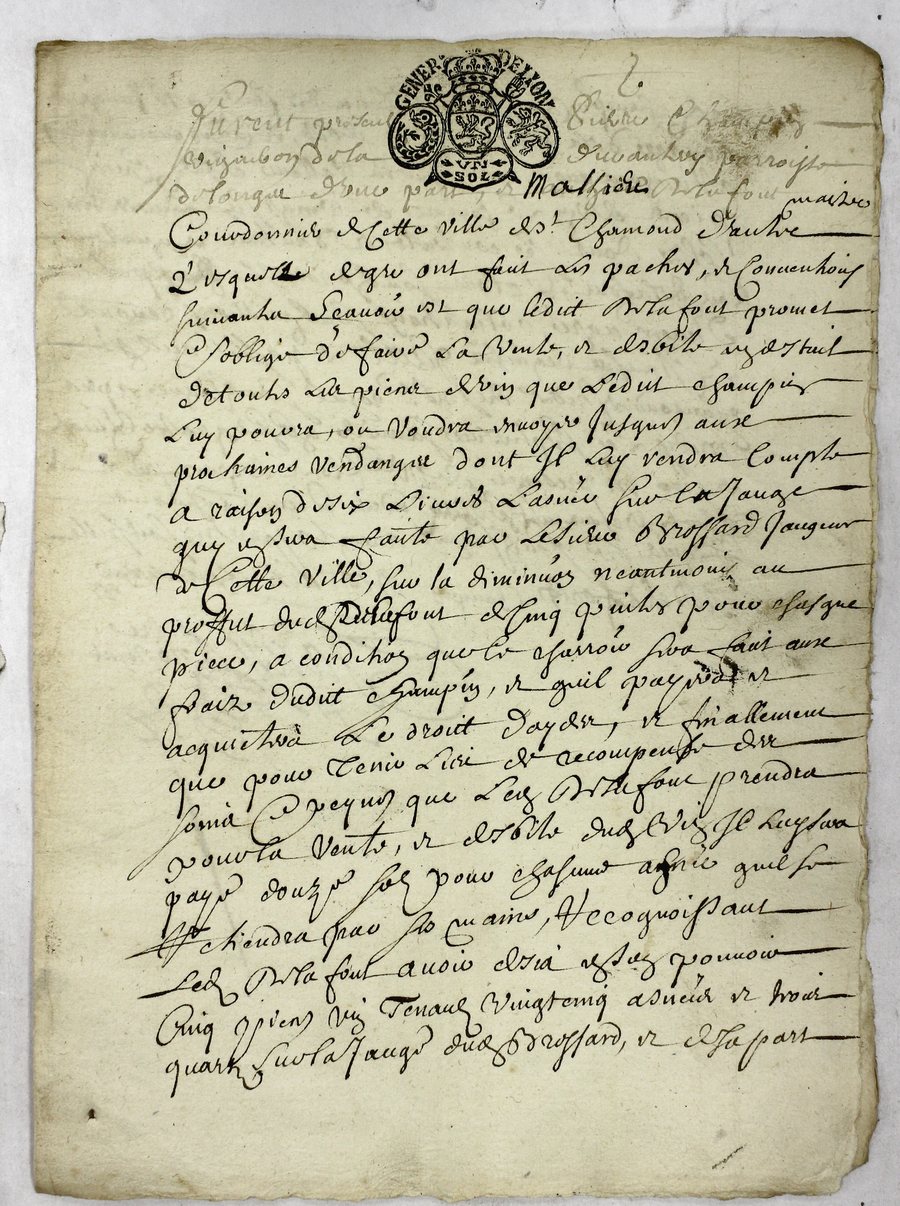 GENER DE LYON
UN SOL
Furent presents Pierre Champin
vigneron de la parroisse
de longes d'une part, et Mathieu Delafont maitre
Courdonnier de Cette Ville de St Chamond d'autre
Lesquelle de gre ont fait Les paches, et Conventions
suivantes Scavoir est que ledit Delafont promet
et soblige de faire La Vente, et debite en destail
de toutes Les pieces de vin que Ledit Champin
Luy pourra, ou Voudra envoyer Jusques aux
prochaines Vendanges dont Il Luy rendra Compte
a raison de six Livres Lasnee sur la Jauge
quy en sera faite par Le sieur Brossard Jaugeur
de Cette Ville, sur la diminuon neantmoins au
proffit dud Delafont de Cinq pintes pour chasque
piece, a condition que le charroy sera fait aux
fraiz dudit Champin, et quil payera et
acquittera Le droit daydes, et finallement
que pour Tenir Lieu de recompense des
soins et peynes que Led Delafont prendra
pour la Vente, et debite dud Vin Il Luy sera
paye douze sols pour chascune asnee quil se
Retiendra par ses mains, Recognoissant
Led Delafont avoir desia en son pouvoir
Cinq pieces vin Tenant Vingt cinq asnees et trois
quarts Sur la Jauge dud Brossard, et de sa part